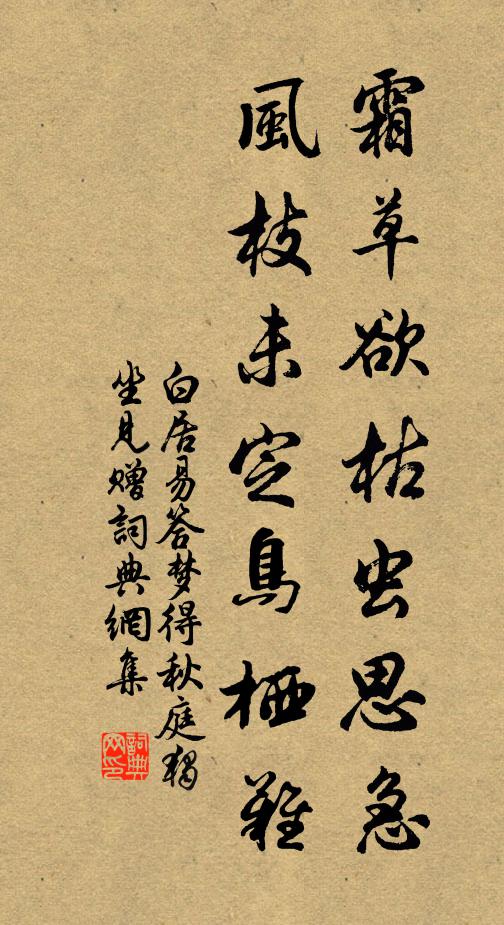 霜草欲枯虫思急
風枝未定鳥栖難
白居易答梦得秋庭獨
坐見贈詞典網集
詞典
网印